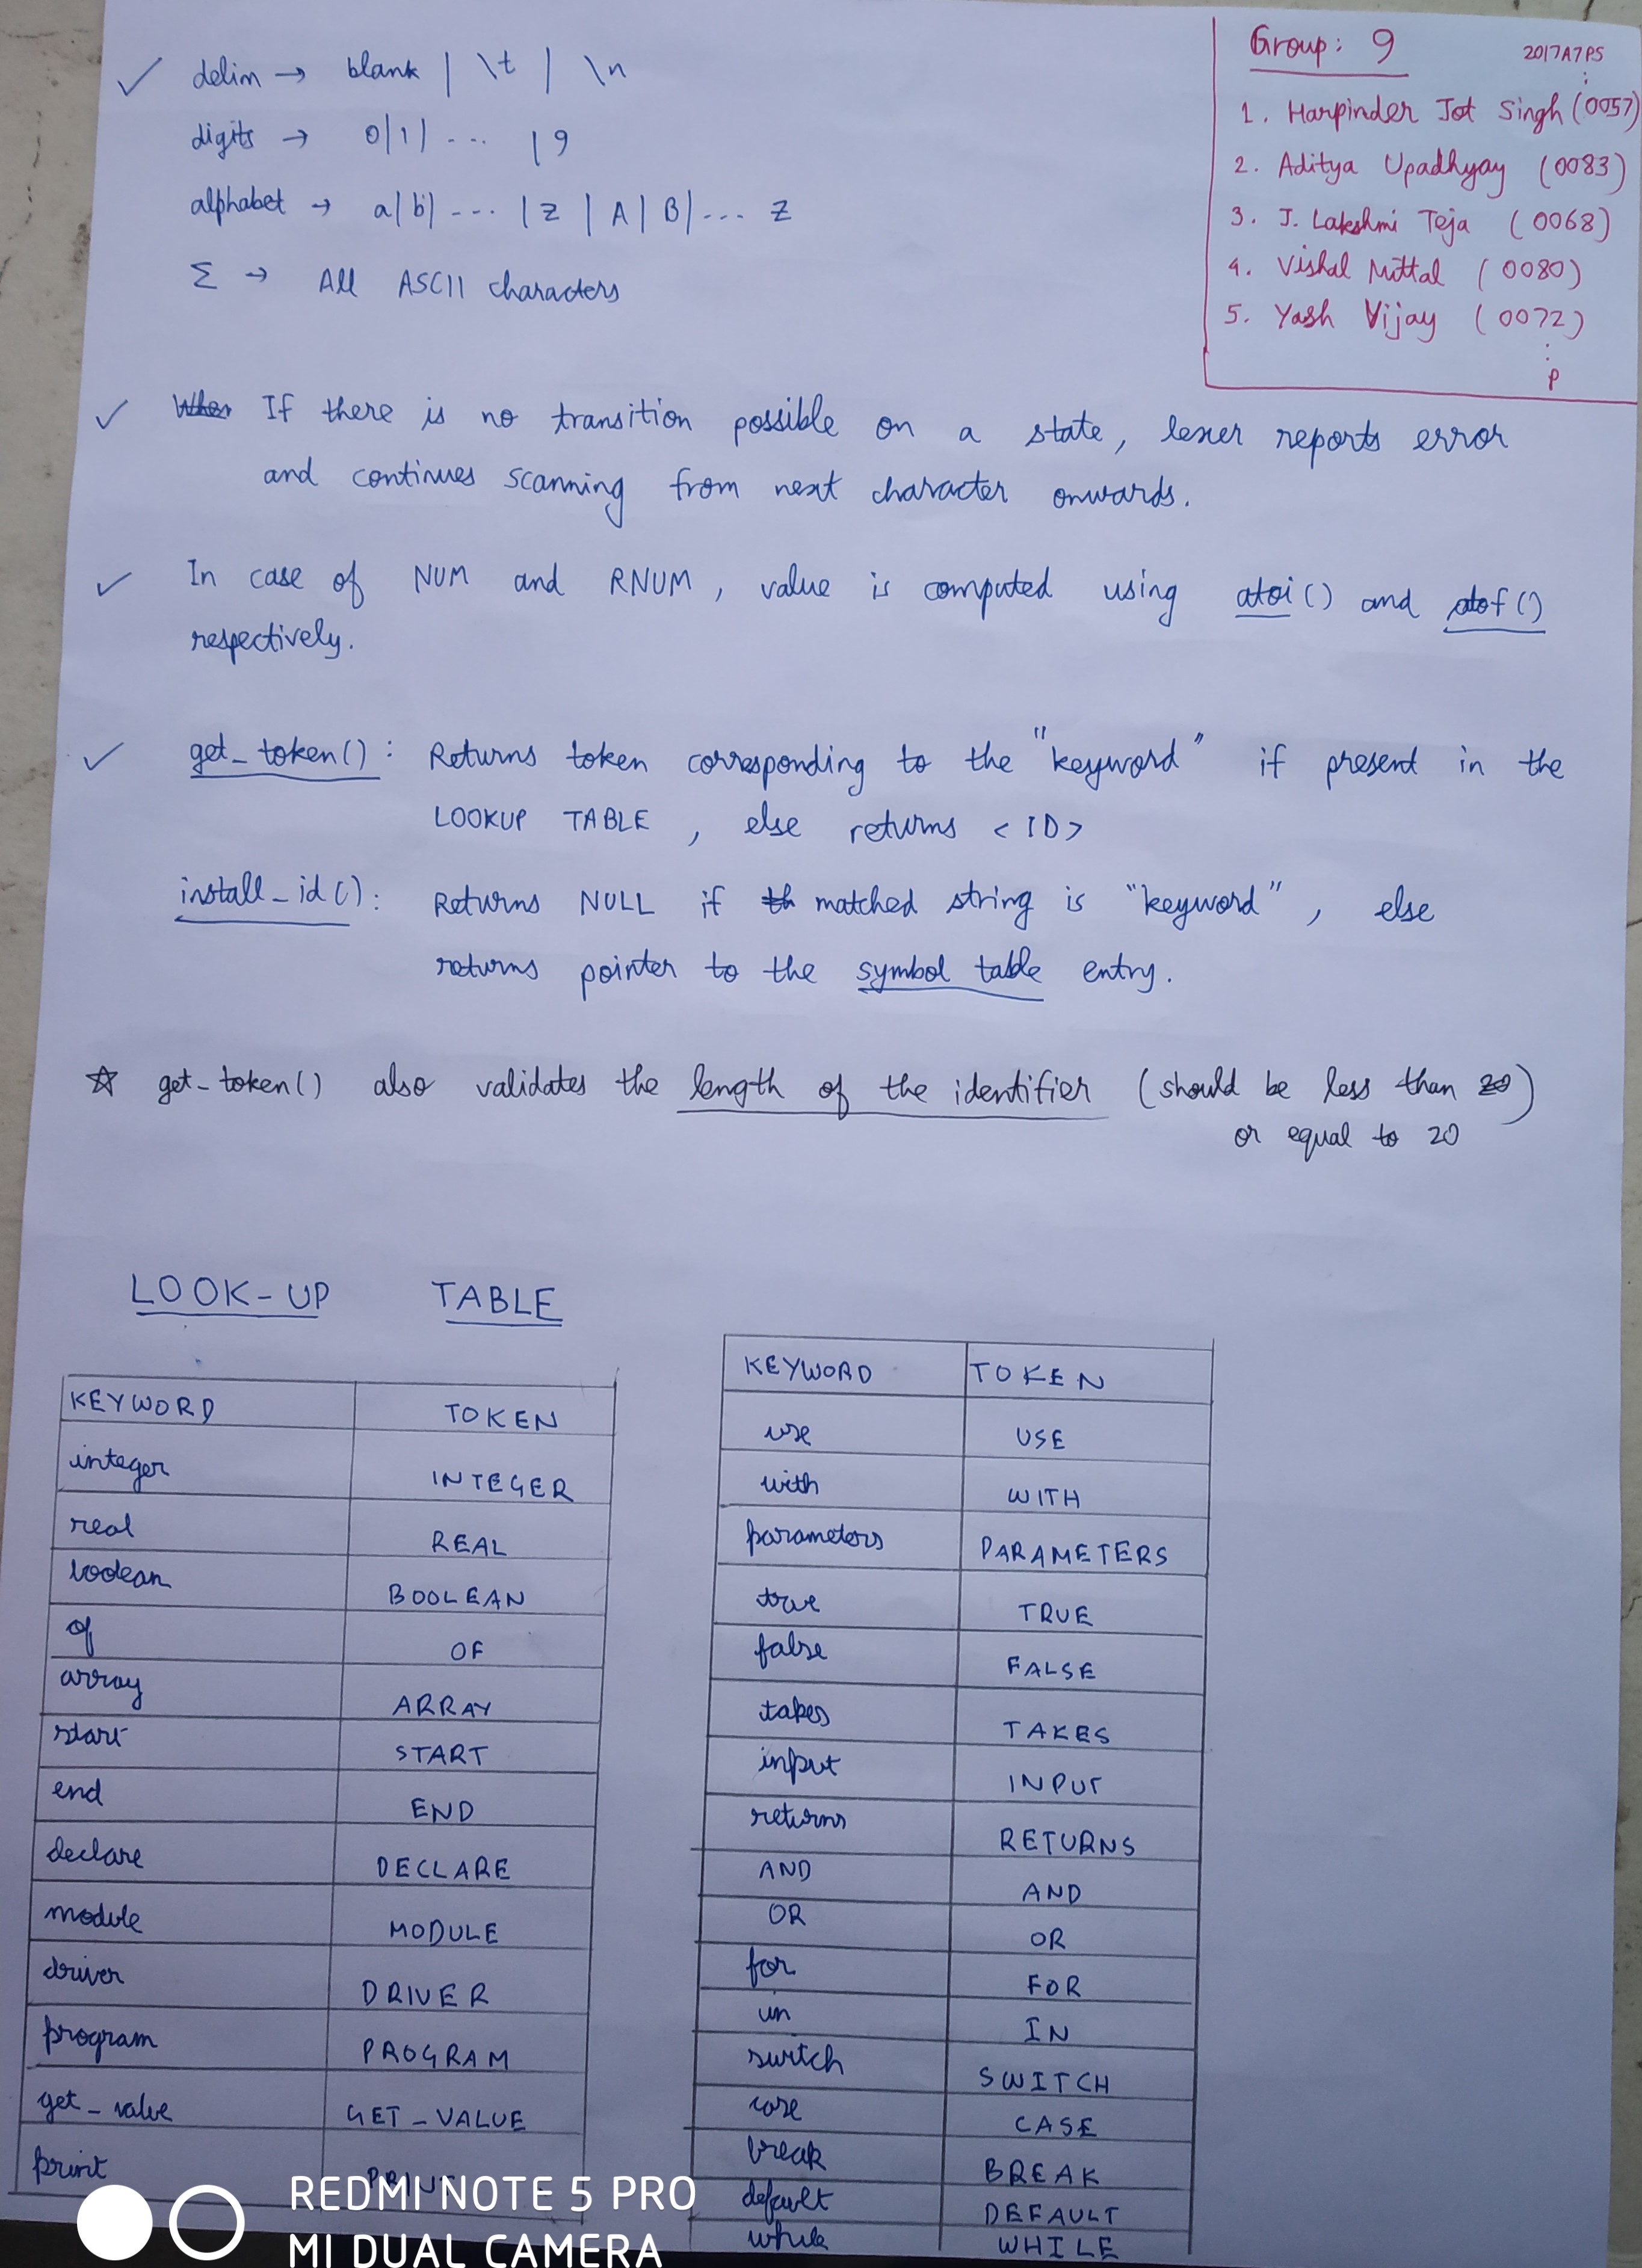 Group: 9 2017A7PS
1. Harpinder Jot Singh (0057)
2. Aditya Upadhyay (0083)
3. J. Lakshmi Teja (0068)
4. Vishal Mittal (0080)
5. Yash Vijay (0072)
P
✓ delim → blank | \t | \n
digits → 0|1| --- |9
alphabet → a|b| --- |z | A | B| --- Z
Σ → All ASCII characters
✓ When If there is no transition possible on a state, lexer reports error
and continues scanning from next character onwards.
✓ In case of NUM and RNUM, value is computed using atoi() and atof()
respectively.
✓ get_token(): Returns token corresponding to the "keyword" if present in the
LOOKUP TABLE, else returns <ID>
install_id(): Returns NULL if th matched string is "keyword", else
returns pointer to the symbol table entry.
☆ get_token() also validates the length of the identifier (should be less than 20)
or equal to 20
LOOK-UP TABLE
KEYWORD TOKEN
integer INTEGER
real REAL
boolean BOOLEAN
of OF
array ARRAY
start START
end END
declare DECLARE
module MODULE
driver DRIVER
program PROGRAM
get_value GET_VALUE
print PRINT
KEYWORD TOKEN
use USE
with WITH
parameters PARAMETERS
true TRUE
false FALSE
takes TAKES
input INPUT
returns RETURNS
AND AND
OR OR
for FOR
in IN
switch SWITCH
case CASE
break BREAK
default DEFAULT
while WHILE
REDMI NOTE 5 PRO
MI DUAL CAMERA